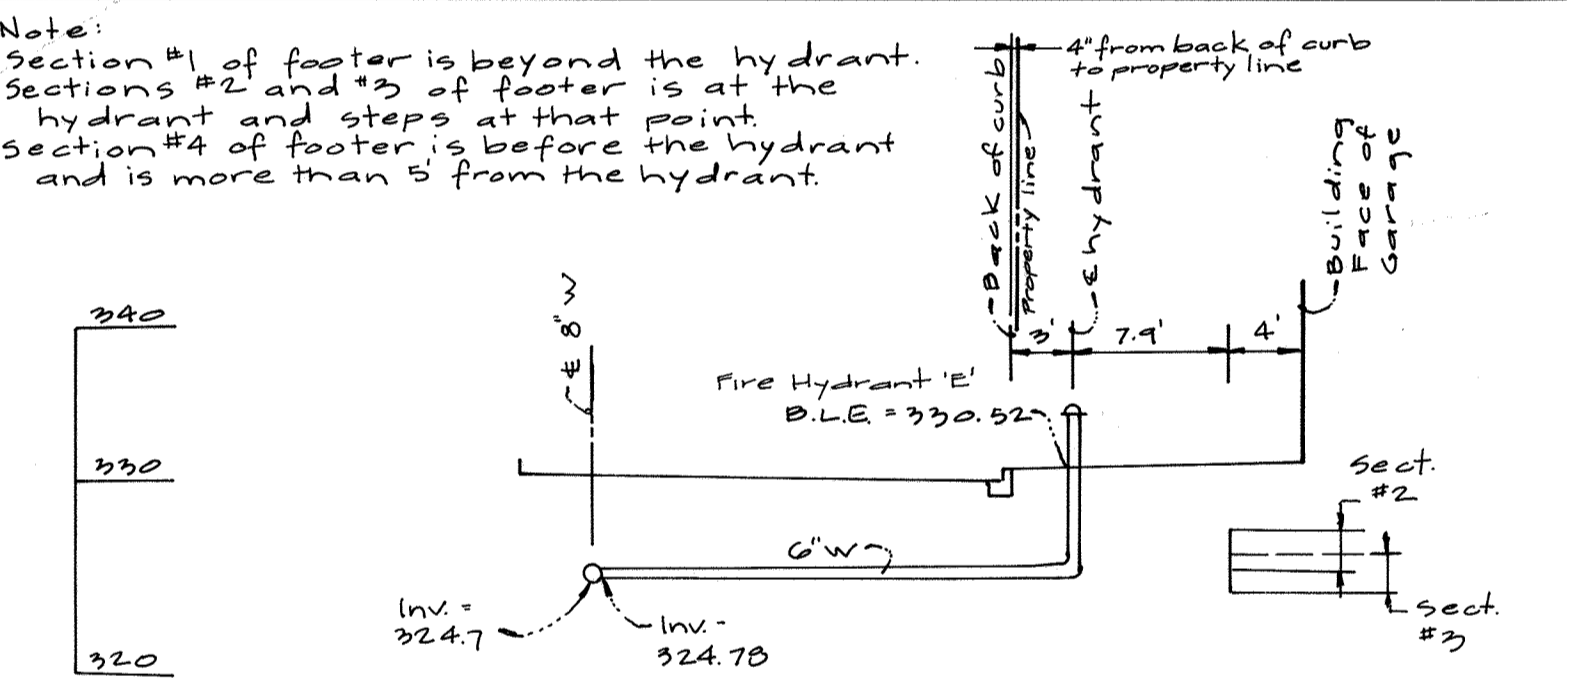 Note:
Section #1 of footer is beyond the hydrant.
Sections #2 and #3 of footer is at the
hydrant and steps at that point.
Section #4 of footer is before the hydrant
and is more than 5' from the hydrant.
4" from back of curb
to property line
Back of curb
Property line
℄ hydrant
Building
Face of
Garage
340
℄ 8" W
3'
7.9'
4'
Fire Hydrant 'E'
B.L.E. = 330.52
330
Sect.
#2
6"W
Inv. =
324.7
Inv. -
324.78
Sect.
#3
320